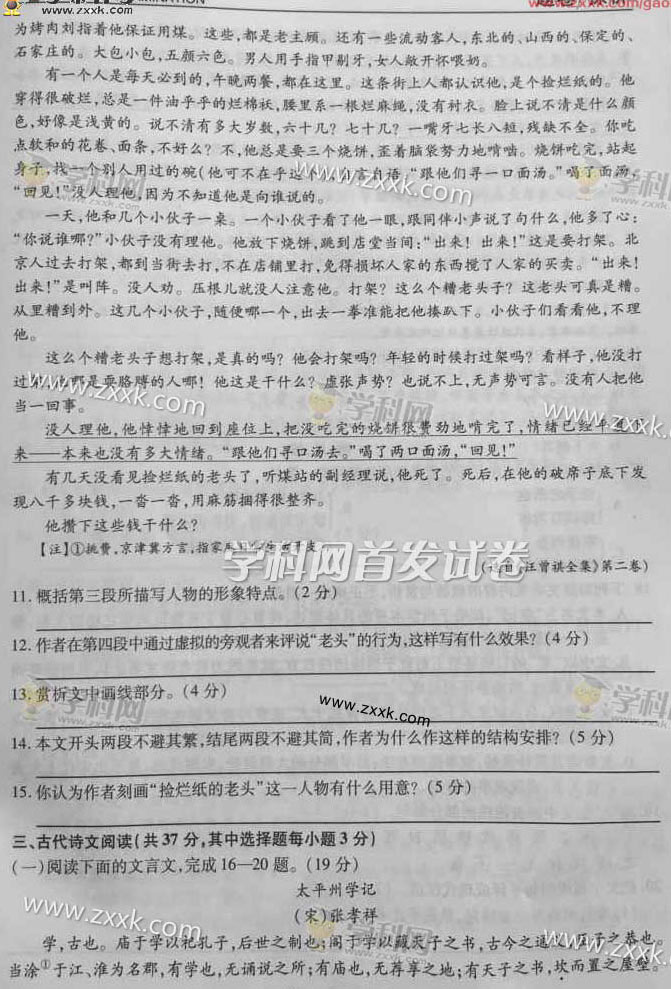 MINATION
www.zxxk.com/gao
为烤肉刘指着他保证用煤。这些,都是老主顾。还有一些流动客人,东北的、山西的、保定的、
石家庄的。大包小包,五颜六色。男人用手指甲剔牙,女人敞开怀喂奶。
有一个人是每天必到的,午晚两餐,都在这里。这条街上人都认识他,是个捡烂纸的。他
穿得很破烂,总是一件油乎乎的烂棉袄,腰里系一根烂麻绳,没有衬衣。脸上说不清是什么颜
色,好像是浅黄的。说不清有多大岁数,六十几?七十几?一嘴牙七长八短,残缺不全。你吃
点软和的花卷、面条,不好么?不,他总是要三个烧饼,歪着脑袋努力地啃啮。烧饼吃完,站起
身子,找一个别人用过的碗(他可不在乎这 自言自语,“跟他们寻一口面汤。”喝了面汤,
“回见!”没人理他,因为不知道他是向谁说的。
一天,他和几个小伙子一桌。一个小伙子看了他一眼,跟同伴小声说了句什么,他多了心:
“你说谁哪?”小伙子没有理他。他放下烧饼,跳到店堂当间:“出来!出来!”这是要打架。北
京人过去打架,都到当街去打,不在店铺里打,免得损坏人家的东西搅了人家的买卖。“出来!
出来!”是叫阵。没人劝。压根儿就没人注意他。打架?这么个糟老头子?这老头可真是糟。
从里糟到外。这几个小伙子,随便哪一个,出去一拳准能把他揍趴下。小伙子们看看他,不理
他。
这么个糟老头子想打架,是真的吗?他会打架吗?年轻的时候打过架吗?看样子,他没打
过 哪是耍胳膊的人哪!他这是干什么?虚张声势?也说不上,无声势可言。没有人把他
当一回事。
没人理他,他悻悻地回到座位上,把没吃完的烧饼很费劲地啃完了,情绪已经平
来——本来也没有多大情绪。“跟他们寻口汤去。”喝了两口面汤,“回见!”
有几天没看见捡烂纸的老头了,听煤站的副经理说,他死了。死后,在他的破席子底下发
现八千多块钱,一沓一沓,用麻筋捆得很整齐。
他攒下这些钱干什么?
【注】①挑费,京津冀方言,指家
汪曾祺全集》第二卷)
11.概括第三段所描写人物的形象特点。(2分)
12.作者在第四段中通过虚拟的旁观者来评说“老头”的行为,这样写有什么效果?(4分)
13.赏析文中画线部分。(4分)
14.本文开头两段不避其繁,结尾两段不避其简,作者为什么作这样的结构安排?(5分)
15.你认为作者刻画“捡烂纸的老头”这一人物有什么用意?(5分)
三、古代诗文阅读(共37分,其中选择题每小题3分)
(一)阅读下面的文言文,完成16—20题。(19分)
太平州学记
(宋)张孝祥
学,古也。庙于学以祀孔子,后世之制也;阁于学以藏天子之书,古今之通 子之恭也。
当涂①于江、淮为名郡,有学也,无诵说之所;有庙也,无荐享之地;有天子之书,坎而置之屋壁。
学科网
学科网首发试卷
www.zxxk.com
www.zxxk.com
www.zxxk.com
www.zxxk.com
www.zxxk.com
www.zxxk.com